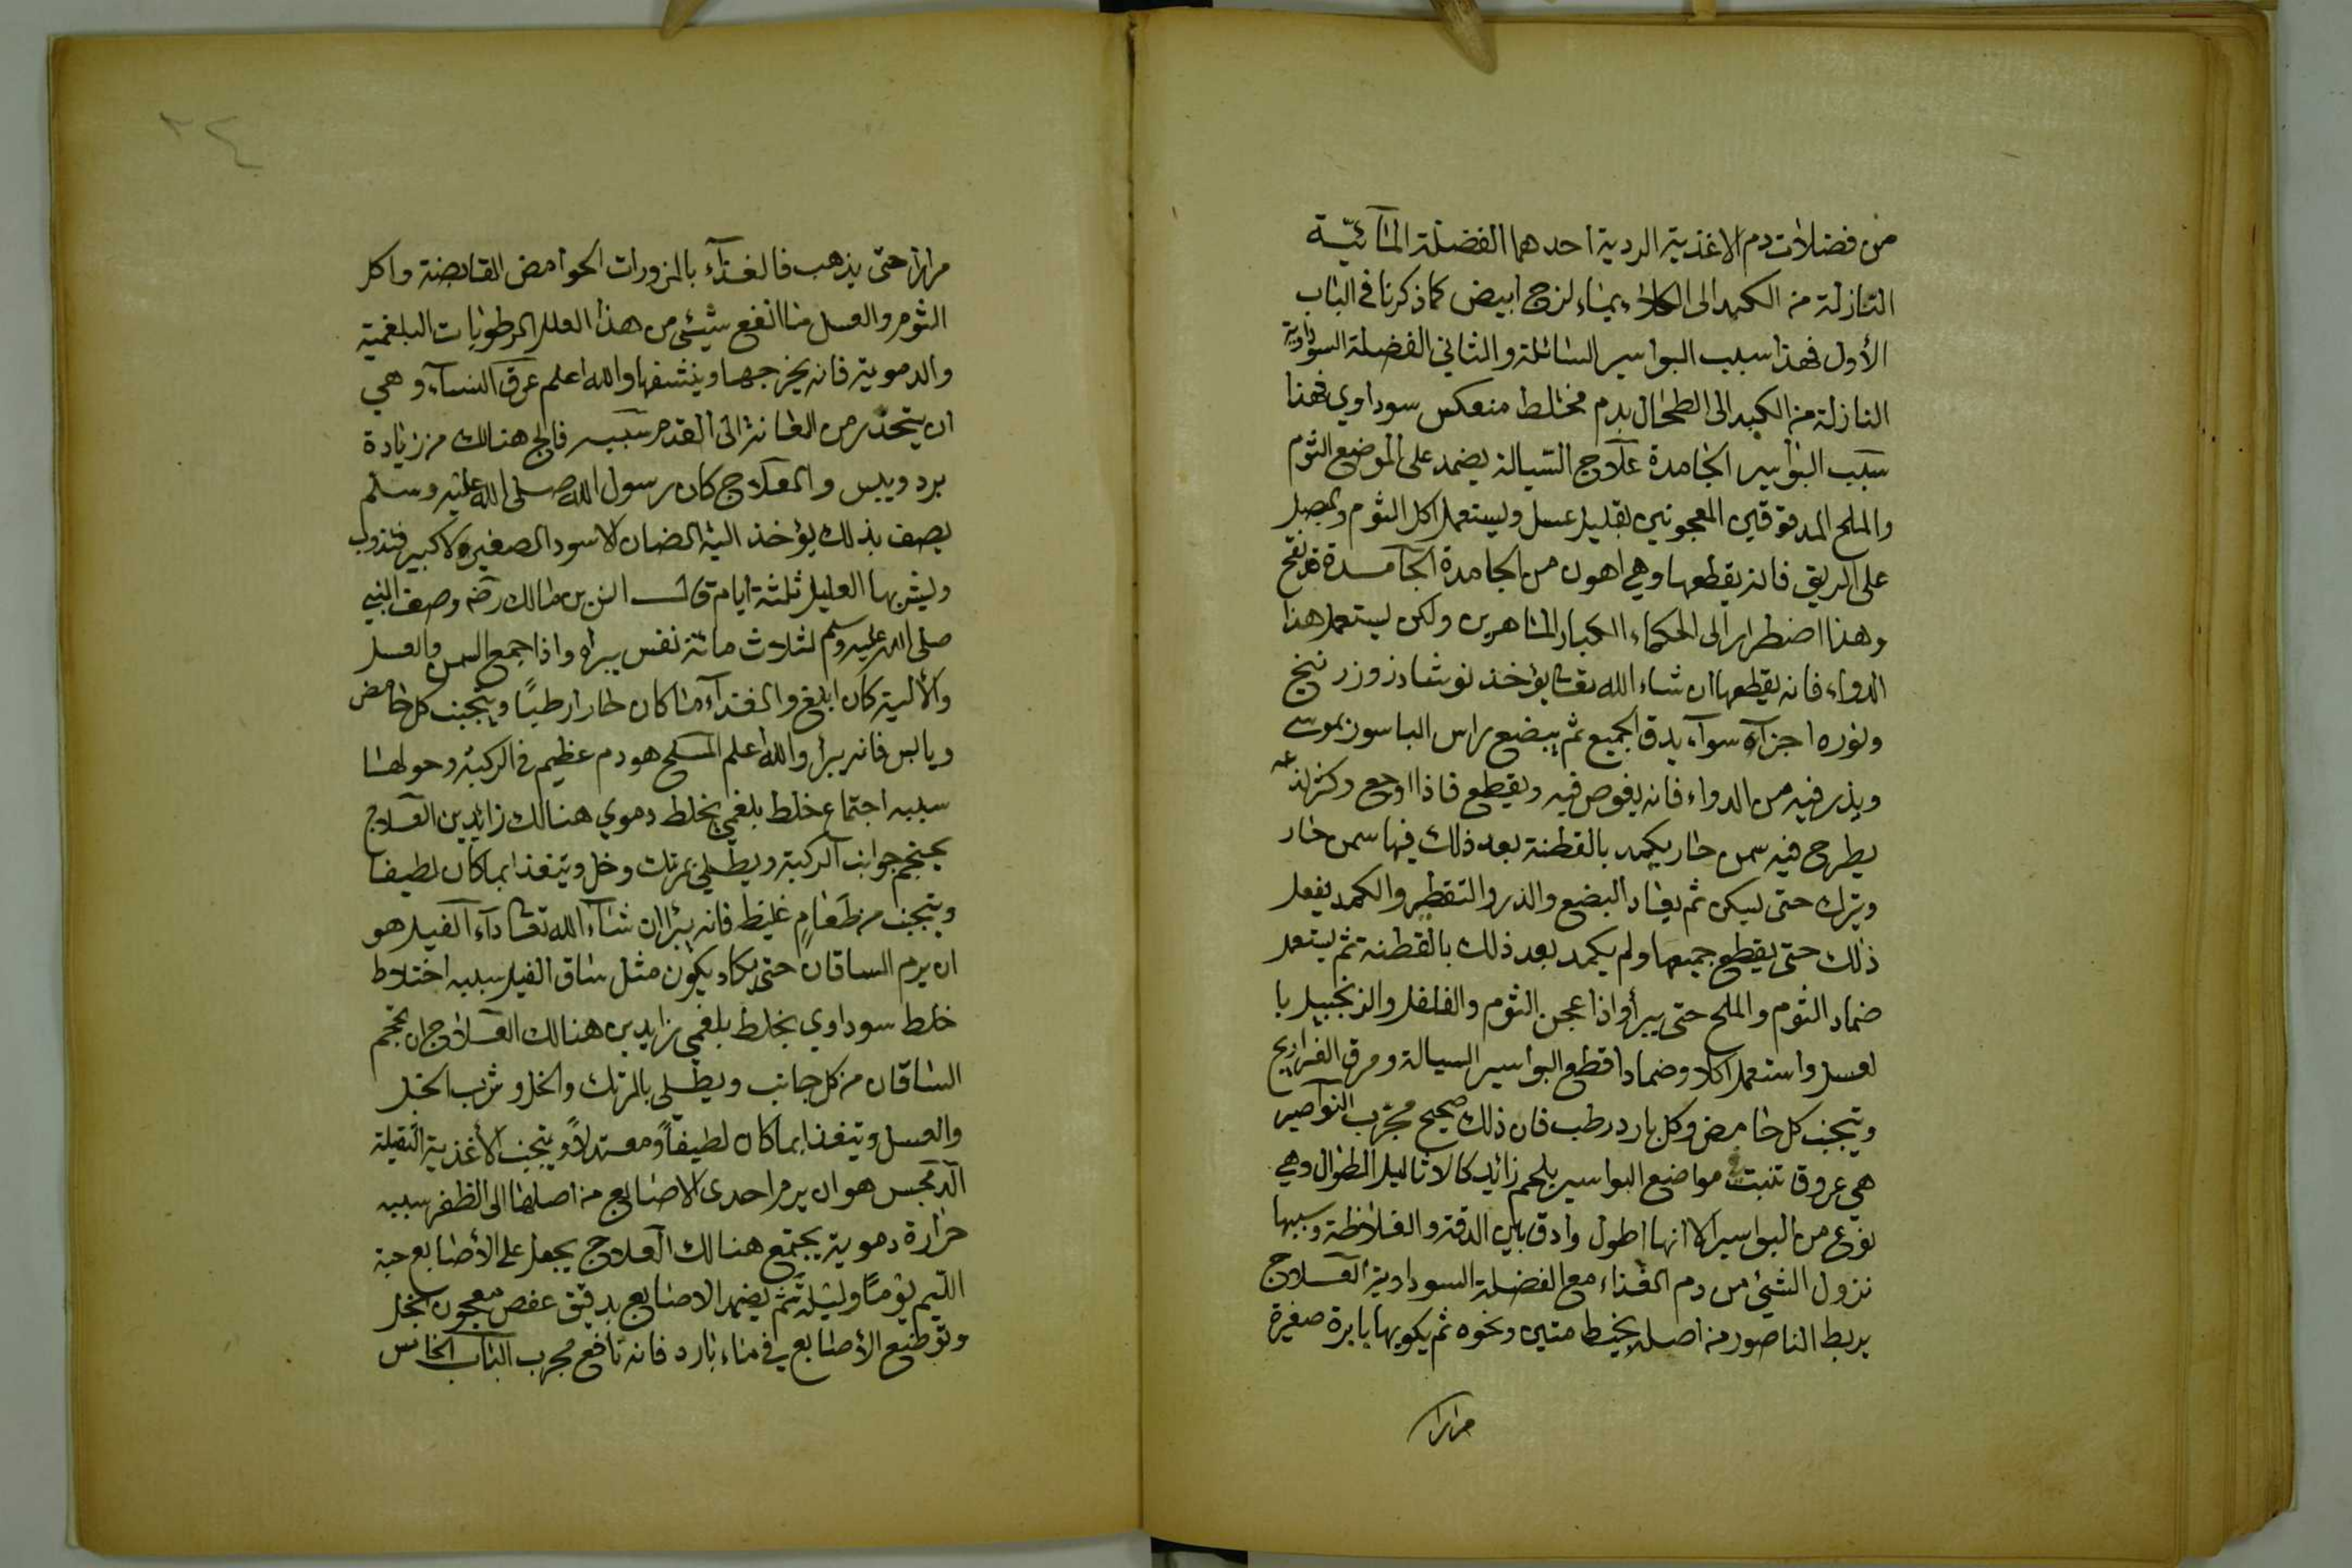 من فضلات دم الاغذية الردية احدهما الفضلة المائيّة
النازلة من الكبد الى الكلا بماء لزج ابيض كما ذكرنا في الباب
الأول فهذا سبب البواسير السائلة والثاني الفضلة السوداوية
النازلة من الكبد الى الطحال بدم مختلط منعكس سوداوي فهذا
سبب البواسير الجامدة علاج السيالة يضمد على الموضع الثوم
والملح المدقوقين المعجونين بقليل عسل ويستعمل اكل الثوم
على الريق فانه يقطعها وهي اهون من الجامدة الجامدة
وهذا اضطرارا الى الحكماء الكبار الماهرين ولكن يستعمل هذا
الدواء فانه يقطعها ان شاء الله تعا يؤخذ نوشاذر وزرنيخ
ونوره اجزاء سواء يدق الجميع ثم يبضع راس الباسور بموسى
ويذر فيه من الدواء فانه يغوص فيه ويقطع فاذا اوجع وكثر لذعه
يطرح فيه سمن حار يكمد بالقطنة بعد ذلك فيها سمن حار
ويترك حتى يسكن ثم يعاد البضع والذر والتقطير والكمد يفعل
ذلك حتى يقطع جميعها ولم يكمد بعد ذلك بالقطنة ثم يستعمل
ضماد الثوم والملح حتى يبرأ واذا عجن الثوم والفلفل والزنجبيل با
لعسل واستعمل اكلا وضمادا قطع البواسير السيالة ومرق الفراريج
ويتجنب كل حامض وكل بارد رطب فان ذلك صحيح مجرب النواصير
هي عروق تنبت في مواضع البواسير بلحم زائد كالاثاليل الطوال وهي
نوع من البواسير الا انها اطول وادق بين الدقة والغلاظة وسببها
نزول الشيئ من دم الغذاء مع الفضلة السوداوية العلاج
يربط الناصور من اصله بخيط متين ونحوه ثم يكويها بابرة صغيرة
مرارا
٢٤
مرارا حتى يذهب فالغذاء بالمزورات الحوامض القابضة واكل
الثوم والعسل من انفع شيئ من هذا العلل الرطوبات البلغمية
والدموية فانه يخرجها وينشفها والله اعلم عرق النساء وهي
ان يتحدر من العانة الى القدم سببه فالج هنالك من زيادة
برد ويبس والعلاج كان رسول الله صلى الله عليه وسلم
يصف بذلك يؤخذ الية الضان الاسود الصغيرة لا كبير فتذوب
ويشربها العليل ثلثة ايام قال انس بن مالك رضه وصف النبي
صلى الله عليه وسلم لثلاث مائة نفس يبراه واذا جمع السمن والعسل
والألية كان ابلغ والغذاء ما كان حارا رطبًا ويتجنب كل حامض
ويابس فانه يبرأ والله اعلم المسلح هو دم عظيم في الركبة وحولها
سببه اجتماع خلط بلغمي بخلط دموي هنالك زائدين العلاج
يحجم جوانب الركبة ويطلى بمرتك وخل ويتغذا بما كان لطيفا
ويتجنب من طعامٍ غليظ فانه يبرأ ان شاء الله تعا داء الفيل هو
ان يرم الساقان حتى يكاد يكون مثل ساق الفيل سببه اختلاط
خلط سوداوي بخلط بلغمي زايدين هنالك العلاج ان تحجم
الساقان من كل جانب ويطلى بالمرتك والخل وشرب الخل
والعسل ويتغذا بما كان لطيفاً ومعتدلاً ويتجنب الأغذية الثقيلة
الدمحس هو ان يرم احدى الاصابع من اصلها الى الظفر سببه
حرارة دموية يجتمع هنالك العلاج يجعل على الأصابع حبة
اللّيم يومًا وليلة ثم يضمد الاصابع بدقيق عفص معجون بخل
وتوضع الأصابع في ماء بارد فانه نافع مجرب الباب الخامس